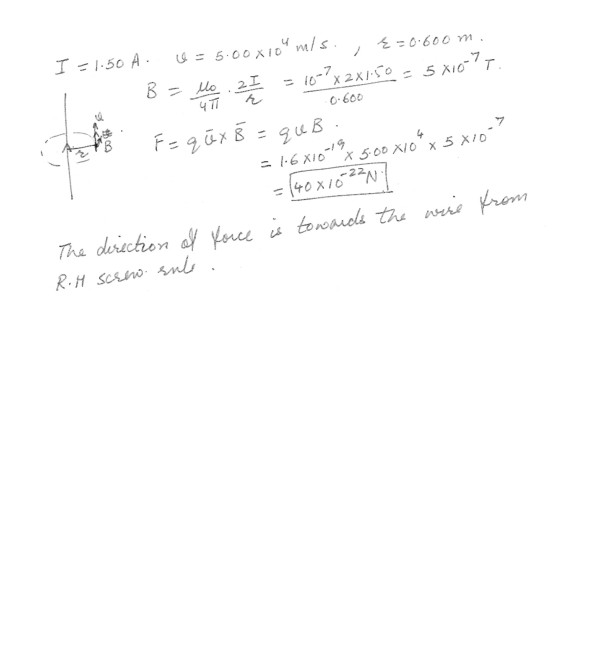 I = 1.50 A. v = 5.00 x 10⁴ m/s. , r = 0.600 m.
B = μ₀/4π · 2I/r = 10⁻⁷ x 2 x 1.50 / 0.600 = 5 x 10⁻⁷ T.
v
B
r
F = q v̄ x B̄ = q v B.
= 1.6 x 10⁻¹⁹ x 5.00 x 10⁴ x 5 x 10⁻⁷
= 40 x 10⁻²² N
The direction of force is towards the wire from
R.H screw rule.